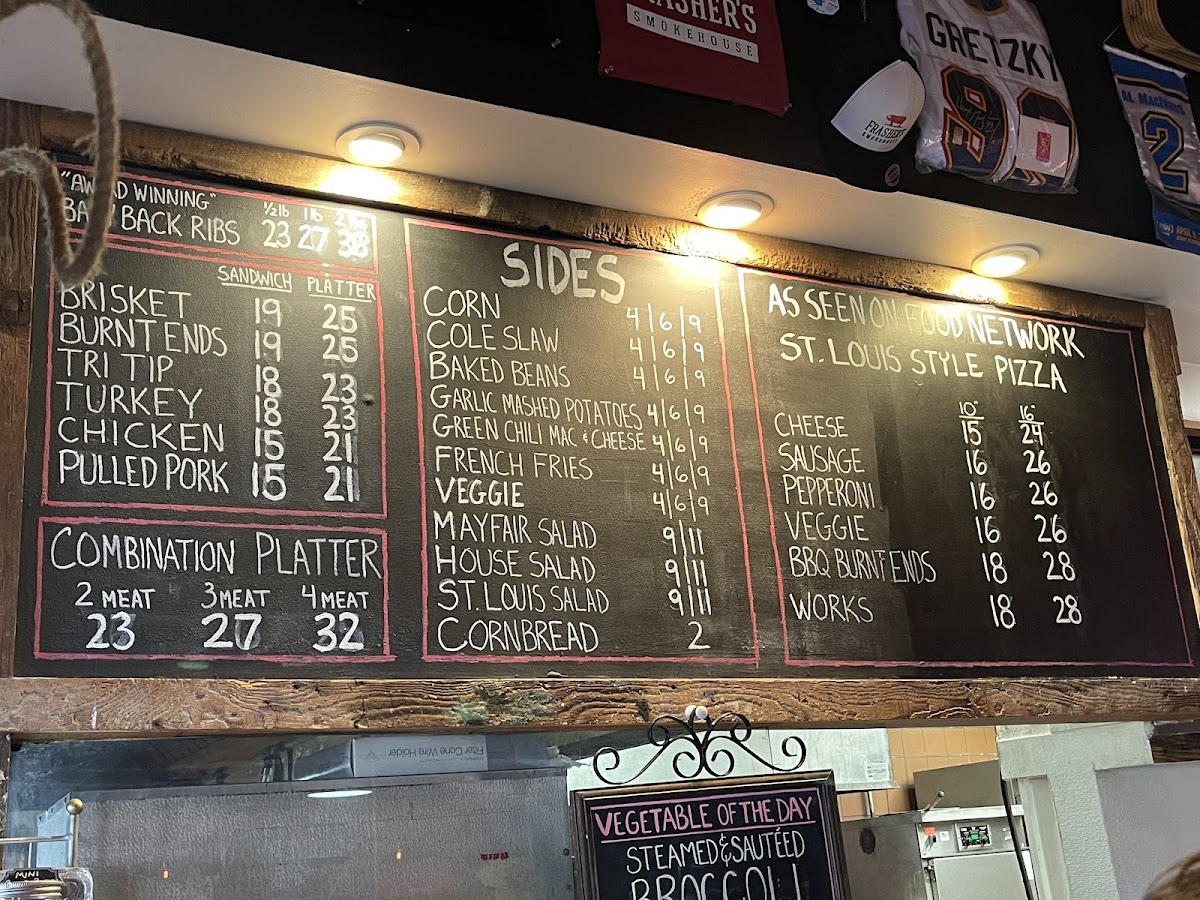 FRASHER'S
SMOKEHOUSE
GRETZKY
FRASHER'S
AL MacINNIS
2
WINNING"
½ lb 1 lb
BACK RIBS 23 27 38
SANDWICH PLATTER
BRISKET 19 25
BURNT ENDS 19 25
TRI TIP 18 23
TURKEY 18 23
CHICKEN 15 21
PULLED PORK 15 21
COMBINATION PLATTER
2 MEAT 3 MEAT 4 MEAT
23 27 32
SIDES
CORN 4|6|9
COLE SLAW 4|6|9
BAKED BEANS 4|6|9
GARLIC MASHED POTATOES 4|6|9
GREEN CHILI MAC & CHEESE 4|6|9
FRENCH FRIES 4|6|9
VEGGIE 4|6|9
MAYFAIR SALAD 9|11
HOUSE SALAD 9|11
ST. LOUIS SALAD 9|11
CORNBREAD 2
AS SEEN ON FOOD NETWORK
ST. LOUIS STYLE PIZZA
10" 16"
CHEESE 15 24
SAUSAGE 16 26
PEPPERONI 16 26
VEGGIE 16 26
BBQ BURNT ENDS 18 28
WORKS 18 28
Filter Cone Wire Holder
VEGETABLE OF THE DAY
STEAMED & SAUTÉED
BROCCOLI
MINI